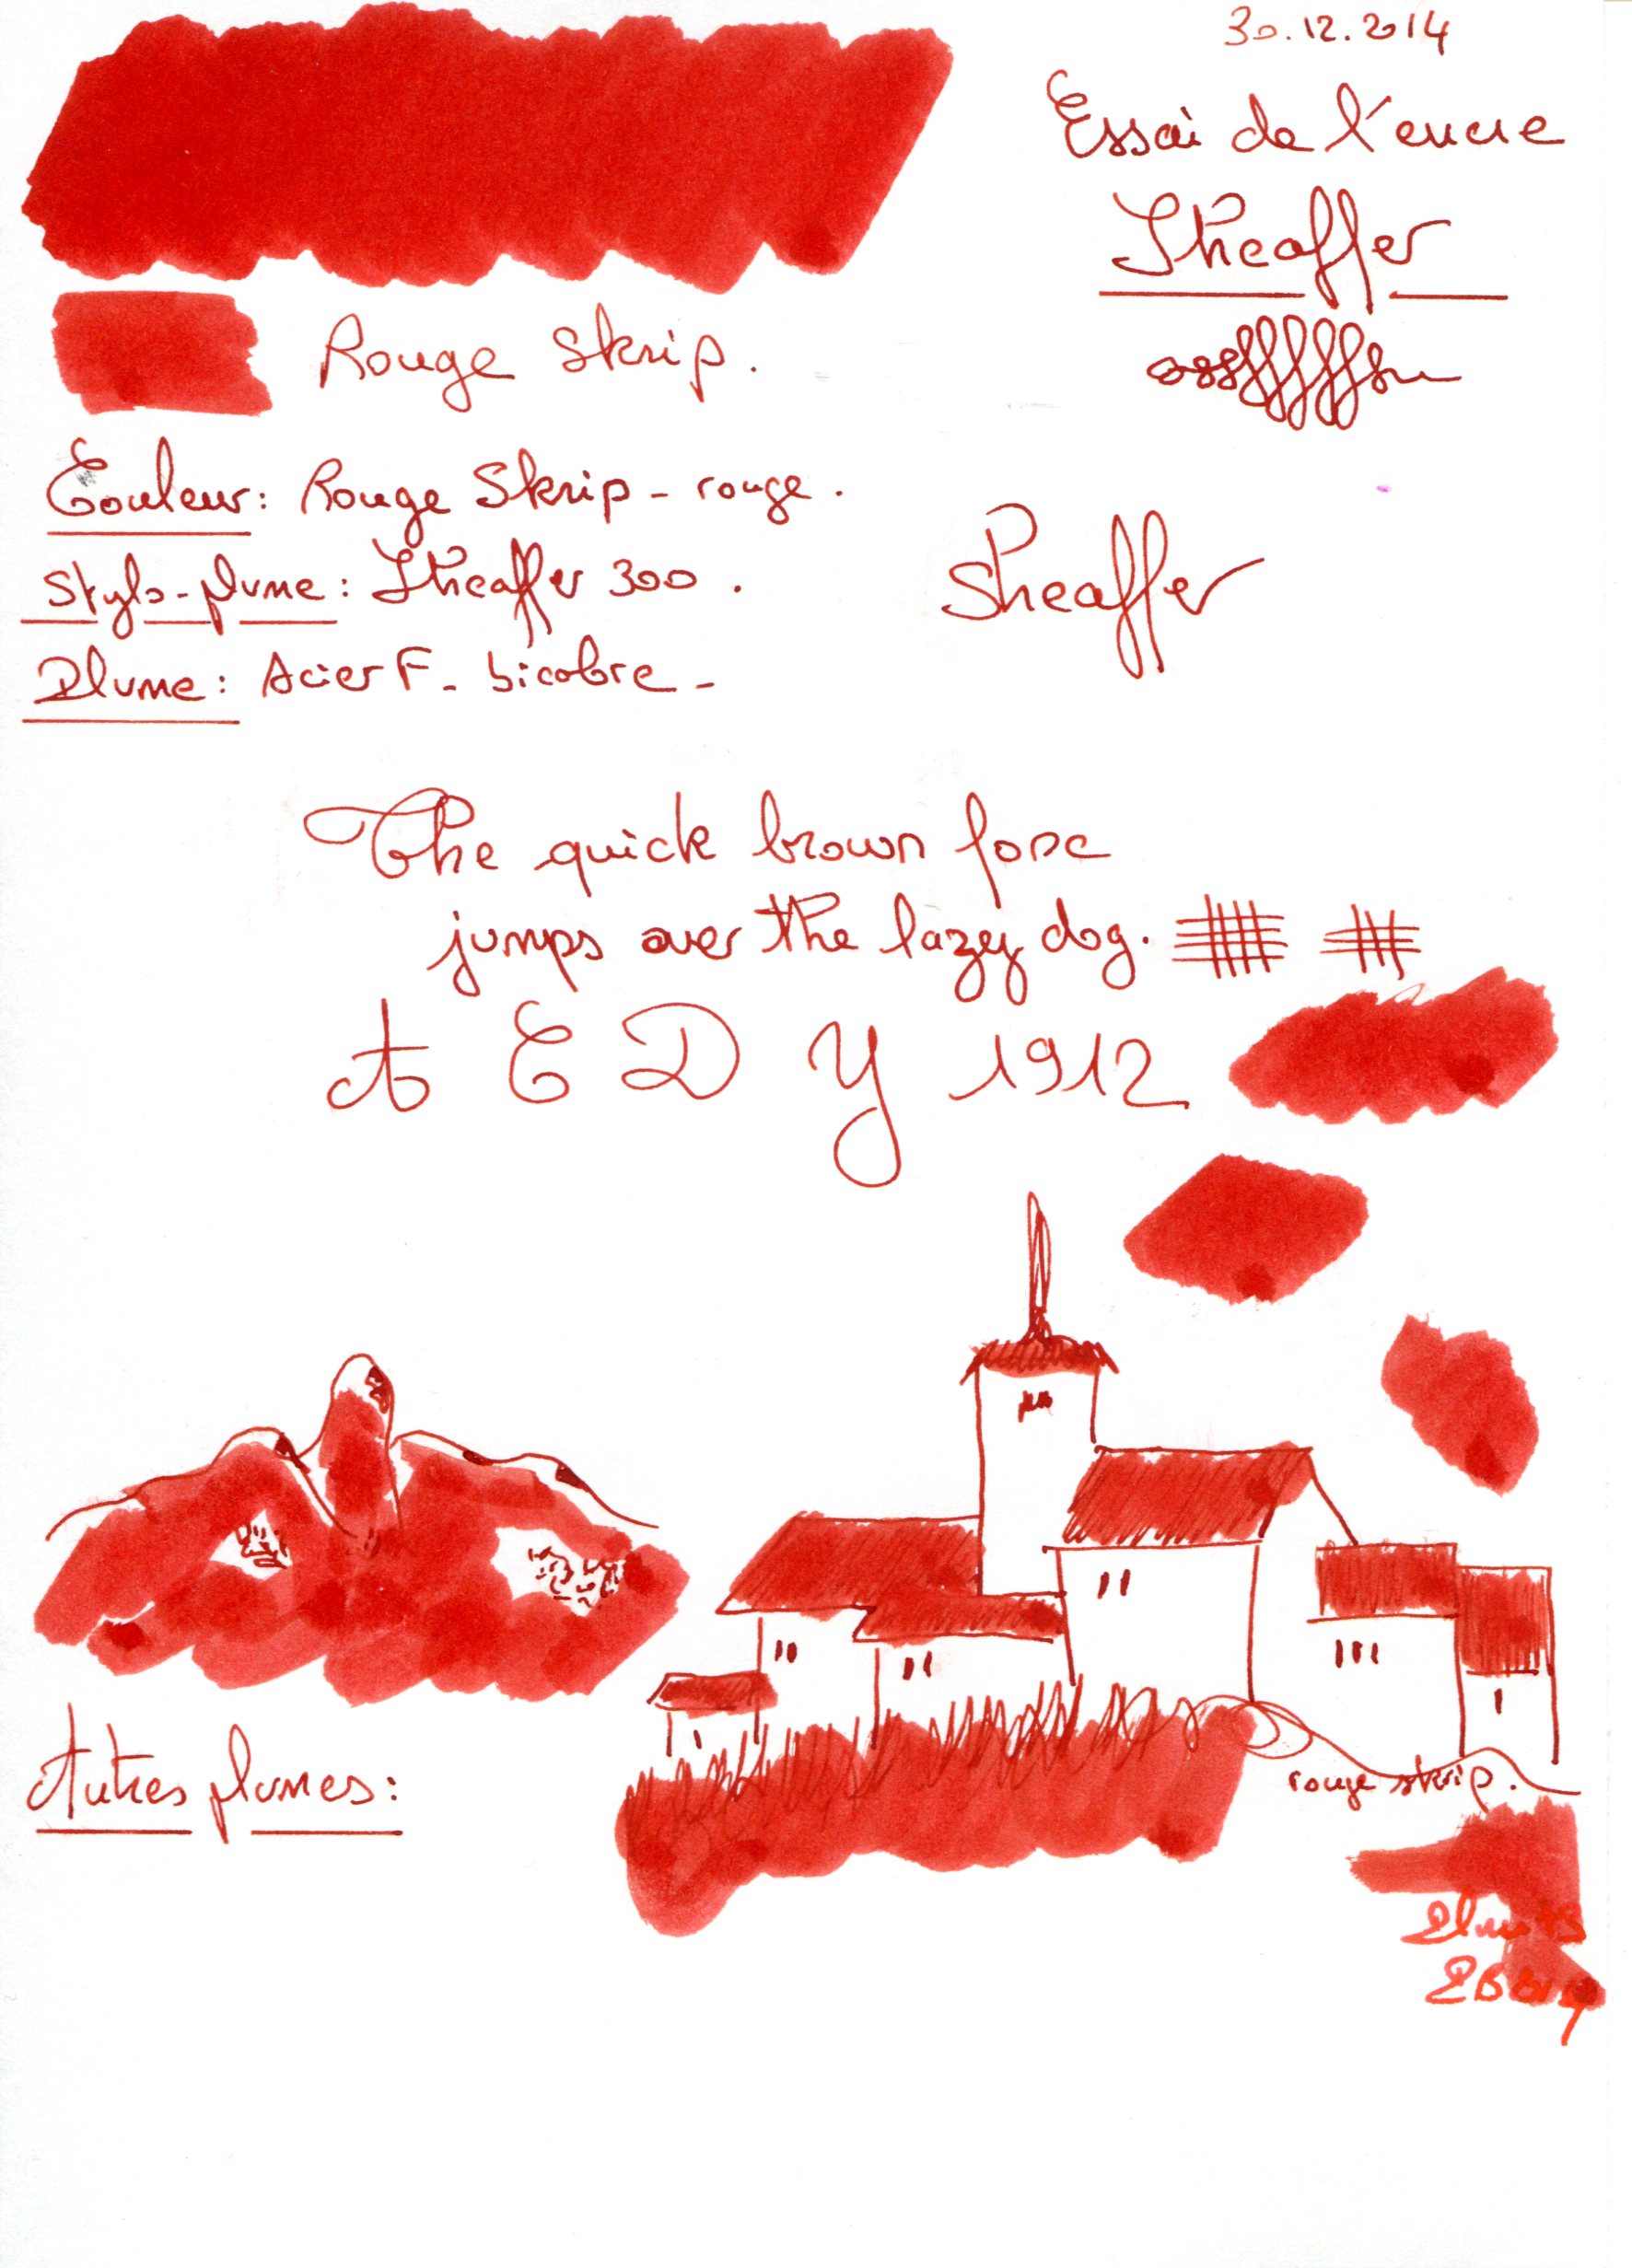 30.12.2014
Essai de l'encre
Sheaffer
Rouge Skrip.
Couleur: Rouge Skrip - rouge.
Stylo-plume: Sheaffer 300.
Sheaffer
Plume: Acier F - bicolore -
The quick brown fox
jumps over the lazy dog.
A E D Y 1912
Autres plumes:
rouge skrip.